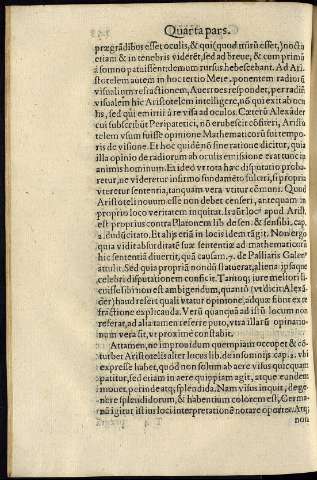 Quarta pars.
prægrãdibus esset oculis, & qui (quod mirũ esset,) noctu
etiam & in tenebris viderét, sed ad breve, & cum primũ
à somno patuissent; demom rursus hebescebant. Ad Ari-
stotelem autem in hoc tertio Mete. ponentem radiorũ
visualium refractionem, Averroes responder, per radiũ
visualem hic Aristotelem intelligere, nõ qui exit ab ocu
lis, sed qui emittit à re visa ad oculos. Cæterũ Alexãder
cui subscribũt Peripatetici, nõ erubescit cõsiteri, Aristo
telem usum fuisse opinione Mathematicorũ sui tempo-
ris de visone. Et hoc quidé nõ sine ratione dicitur, quia
illa opinio de radiorum ab oculis emissione erat tunc in
animis hominum. Et ideo vt tota hæc disputatio proba-
retur, ne videretur infirmo fundamẽto fulciri, si propria
vteretur sententia, tanquam vera vtitur cõmoni. Quod
Aristoteli nouum esse non debet censeri, antequam in
proprius loco veritatem inquitat.
est proprius contra Platonem lib. de sen. & sensibi, cap.
2. dijudicato. Et alijs etiã in locis idem agit. Non ergo
quia vidit absurditatẽ suæ sententiæ ad mathematicorũ
hic sententiã diuertit, quã causam. 7. de Passiatis Galen9
attulit. Sed quia propriã nõdũ statuerat, aliena ipsaque
celebri disputationem conficit. Tantoq; iure meliori li-
cuisse sibi non est ambigendum, quantũ (vt dicit Alexã
der) haud refert quali vtatur opinione, adque fiõnt ex re
fractione explicanda. Verũ quanquã ad istũ locum non
referat, ad alia tamen referre puto, vtra illarũ opinio-
num vera sit, vt proximè constabit.
Attamen, ne improuidum quempiam occupet & cõ
turbet Aristotelis alter locus lib. de insomniis cap. 2. vbi
expresse habet, quòd non solum ab aere visus quicquam
patitur, sed etiam in aere quippiam agit, atque eundem
mouet, perinde atq; splendida. Nam visus inquit, de ge-
nere splendidorum, & habentium colorem est, Germa-
nã igitur istius loci interpretationẽ notare oportet. Atq;
non